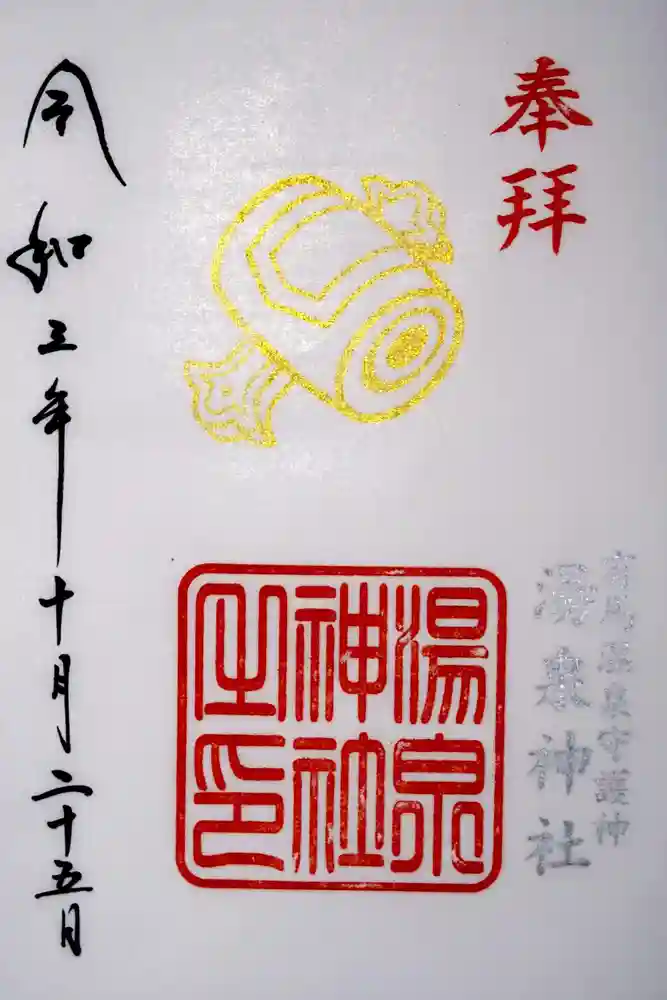 奉拝
有馬温泉守護神
湯泉神社
湯泉
神社
之印
令和三年十月二十五日